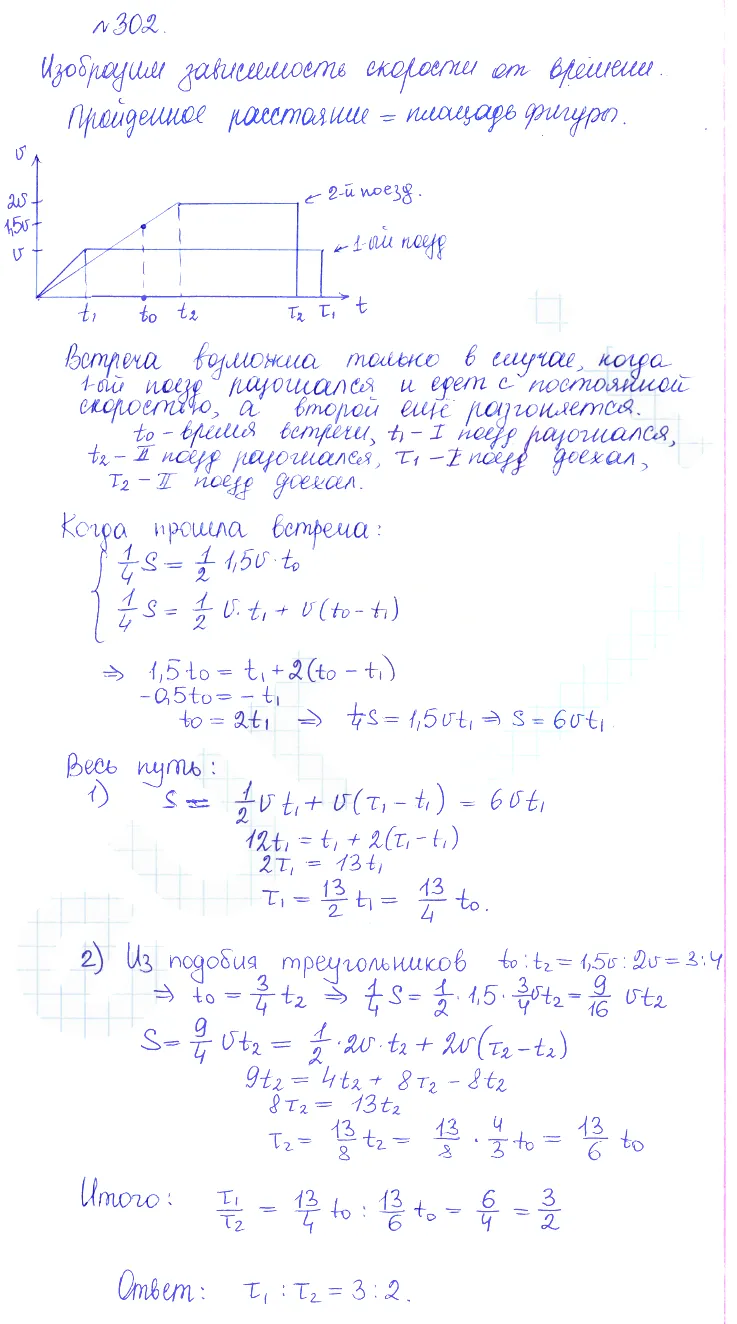 №302.
Изобразим зависимость скорости от времени.
Пройденное расстояние = площадь фигуры.
v
2v
1,5v
v
← 2-й поезд.
← 1-ый поезд
t₁ t₀ t₂ τ₂ τ₁ t
Встреча возможна только в случае, когда
1-ый поезд разогнался и едет с постоянной
скоростью, а второй ещё разгоняется.
t₀ – время встречи, t₁ – I поезд разогнался,
t₂ – II поезд разогнался, τ₁ – I поезд доехал,
τ₂ – II поезд доехал.
Когда прошла встреча:
{ 1/4 S = 1/2 1,5v · t₀
1/4 S = 1/2 v · t₁ + v(t₀ – t₁)
⇒ 1,5t₀ = t₁ + 2(t₀ – t₁)
-0,5t₀ = – t₁
t₀ = 2t₁ ⇒ 1/4 S = 1,5vt₁ ⇒ S = 6vt₁
Весь путь:
1) S = 1/2 vt₁ + v(τ₁ – t₁) = 6vt₁
12t₁ = t₁ + 2(τ₁ – t₁)
2τ₁ = 13t₁
τ₁ = 13/2 t₁ = 13/4 t₀.
2) Из подобия треугольников t₀ : t₂ = 1,5v : 2v = 3 : 4
⇒ t₀ = 3/4 t₂ ⇒ 1/4 S = 1/2 · 1,5 · 3/4 vt₂ = 9/16 vt₂
S = 9/4 vt₂ = 1/2 · 2v · t₂ + 2v(τ₂ – t₂)
9t₂ = 4t₂ + 8τ₂ – 8t₂
8τ₂ = 13t₂
τ₂ = 13/8 t₂ = 13/8 · 4/3 t₀ = 13/6 t₀
Итого: τ₁/τ₂ = 13/4 t₀ : 13/6 t₀ = 6/4 = 3/2
Ответ: τ₁ : τ₂ = 3 : 2.